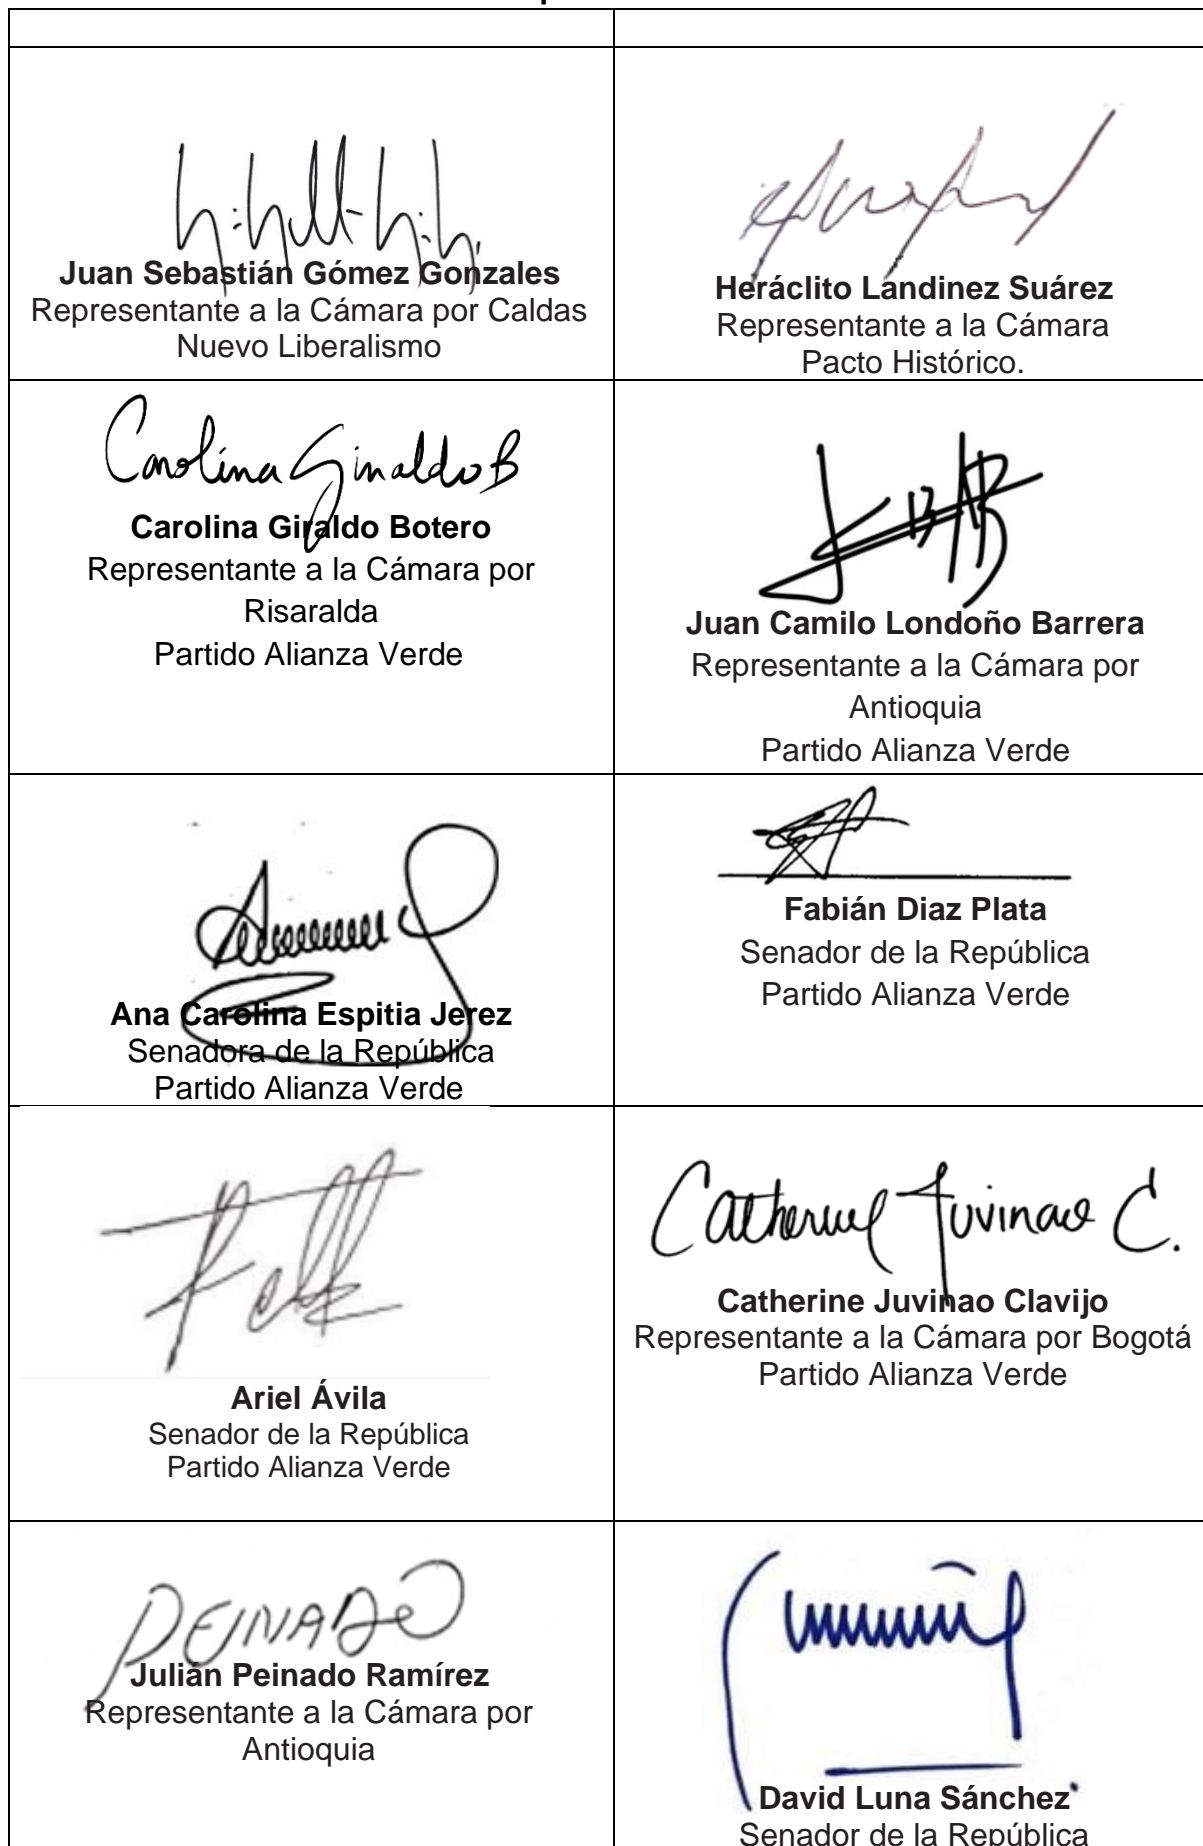 Juan Sebastián Gómez Gonzales
Representante a la Cámara por Caldas
Nuevo Liberalismo
Heráclito Landinez Suárez
Representante a la Cámara
Pacto Histórico.
Carolina Giraldo B
Carolina Giraldo Botero
Representante a la Cámara por
Risaralda
Partido Alianza Verde
Juan Camilo Londoño Barrera
Representante a la Cámara por
Antioquia
Partido Alianza Verde
Ana Carolina Espitia Jerez
Senadora de la República
Partido Alianza Verde
Fabián Diaz Plata
Senador de la República
Partido Alianza Verde
Ariel Ávila
Senador de la República
Partido Alianza Verde
Catherine Juvinao C.
Catherine Juvinao Clavijo
Representante a la Cámara por Bogotá
Partido Alianza Verde
PEINADO
Julián Peinado Ramírez
Representante a la Cámara por
Antioquia
David Luna Sánchez
Senador de la República